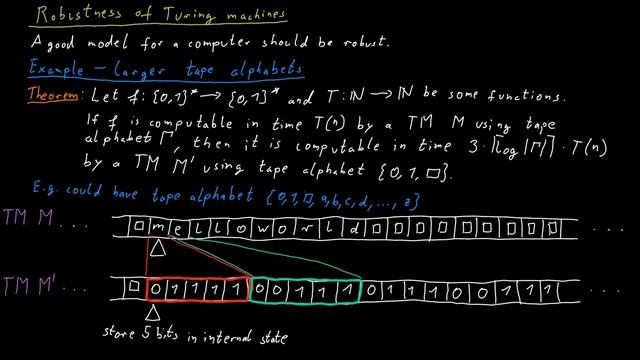 Robustness of Turing machines
A good model for a computer should be robust.
Example – larger tape alphabets
Theorem: Let f: {0,1}* → {0,1}* and T: ℕ → ℕ be some functions.
If f is computable in time T(n) by a TM M using tape
alphabet Γ, then it is computable in time 3·⌈log|Γ|⌉·T(n)
by a TM M' using tape alphabet {0,1,□}.
E.g. could have tape alphabet {0,1,□,a,b,c,d,...,z}
TM M ... □ m e l l o w o r l d □ □ □ □ □ □ □ □ □ ...
TM M' ... □ 0 1 1 1 1 0 0 1 1 1 0 1 1 1 0 0 1 1 1 ...
store 5 bits in internal state